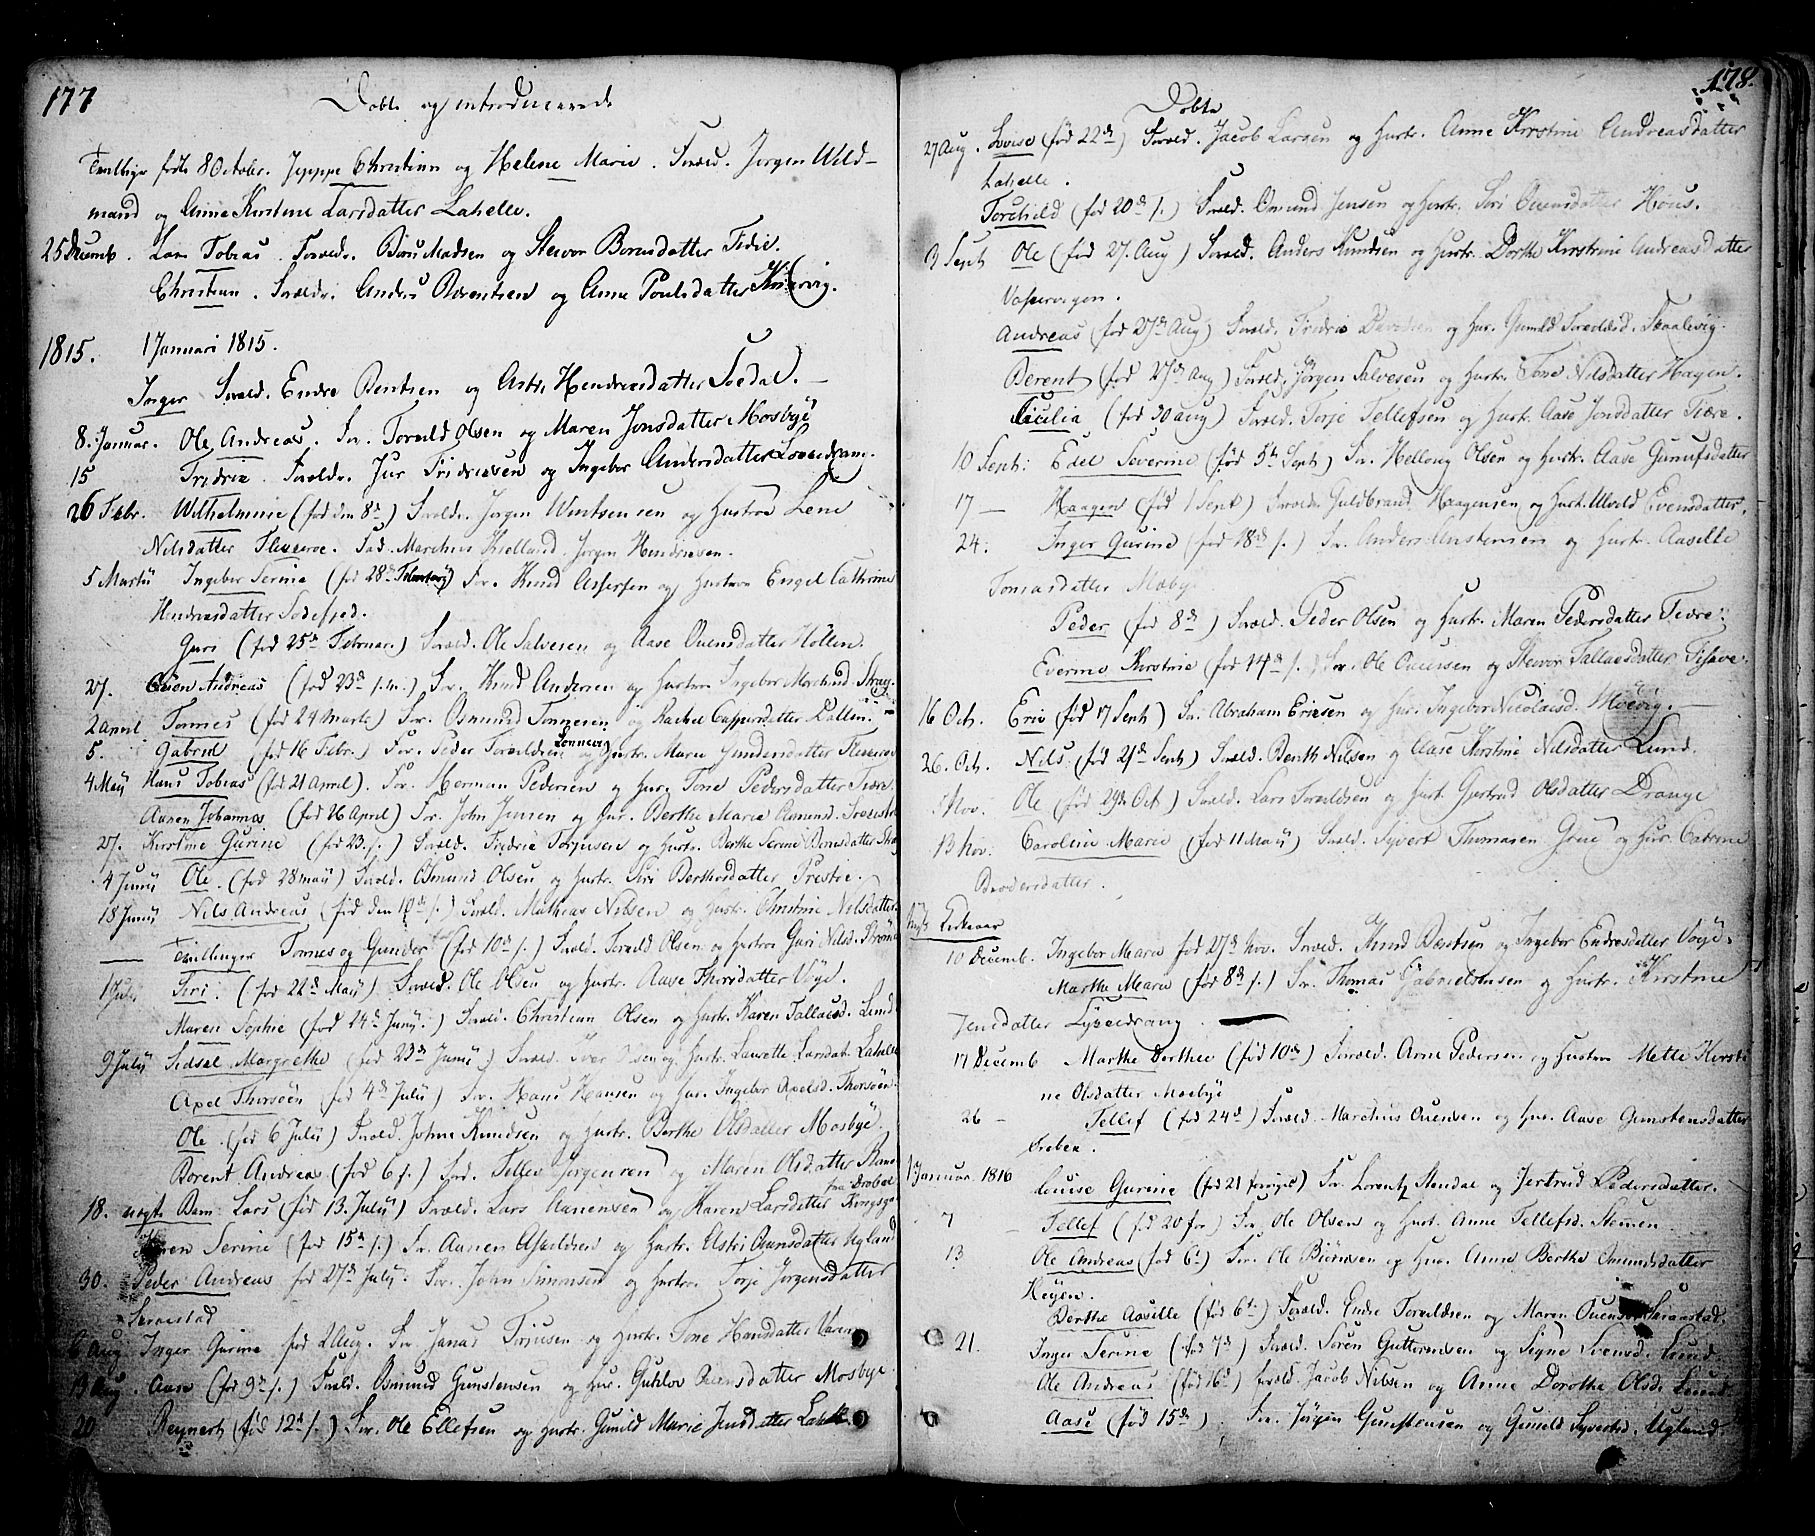 177
Døbte og introducerede
Tvillinger fødte 8 Octobr. Jeppe Christian og Helene Marie. Foræld. Jørgen Wild-
mand og Anne Kirstine Larsdatter Lahelle.
25 Decemb. Lars Tobias. Forældr. Børu Madsen og Stevor Berensdatter
Christian. Forældr. Anders Berentsen og Anne Poulsdatter
1815. 1 Januari 1815.
Inger Foræld. Endre Bentsen og Hendricsdatter Soedal.
8. Januar. Ole Andreas. For. Torvild Olsen og Maren Jonsdatter Mosbye
15 Fridric. Forældr. Fridricsen og Ingebor Andersdatter
26 Febr. Wilhelmine (fød den 8d) Forældr. Jørgen og Hustroe Lene
Nilsdatter Flekeroe. Fad. Kielland. Jørgen Hendricsen.
5 Martii Ingebor Serine (fød 28d Februarij) For. Knud Assersen og Hustroe Engel Cathrine
Hendricsdatter Sodefied.
Guri (fød 25d Februar.) Foræld. Ole Salvesen og Aase Ouensdatter Høllen.
27. Ouen Andreas (fød 23d f. m.) For. Knud Andersen og Hustroe Ingebor Stray.
2 April Tonnes (fød 24 Marts) For. Osmund Tonnesen og Rachel Caspersdatter Dallen.
5. Gabriel (fød 16 Febr.) For. Peder Torvildsen og Hustr. Marie Flekeroe
4 Maij Hans Tobias (fød 21 April). Fo. Herman Pedersen og Hus. Tone Pedersdatter Tiøre
Aanen Johannes (fød 26 April) For. John Jensen og Hur. Berthe Marie Osmund.
27. Kirstine Gurine (fød 23. f.) Foræld. Fridric Torjussen og Hustr. Berthe Serine
4 Junij Ole. (fød 28 maij) Foræld. Osmund Olsen og Hustr. Siri Berthesdatter Prestøe.
18 Junij Nils Andreas (fød den 10d f.) Foræld. Mathias Nilsen og Hustr. Christine Nilsdatter
Tvillinger Tonnes og Gunder (fød 10d f.) Foræld. Torvild Olsen og Hustroe Guri Nilsd. Strømme
1 Juli Siri. (fød 22d Maij) Foræld. Ole Olsen og Hustr. Aase Thorsdatter Voje.
Maren Sophie (fød 14d Junij.) Foræld. Christian Olsen og Hustr. Karen Tallacsd. Lund
9 Julij Sidsel Margrethe (fød 23d Junij) Foræld. Iver Olsen og Hustr. Laurette Larsdat. Lahelle
Axel Thorsøen (fød 4d Julij) For. Hans Hansen og Hus. Ingebor Axelsd. Thorsøen.
Ole (fød 6 Julij) Foræld. John Knudsen og Hustr. Berthe Olsdatter Mosbye.
Berent Andreas (fød 6 f.) Foræld. Tellev Jørgensen og Maren Olsdatter
fra Drobak
18. uægt. Barn Lars (fød 13. Julij) Foræld. Lars Aanensen og Karen Larsdatter
Serine (fød 15d f.) For. Aanen og Hustr. Astri Ouensdatter Ugland
30. Peder Andreas fød 27d Julij. For. John Simonsen og Hustroe Torje Jørgensdatter
6 Aug Inger Gurine fød 2 Aug. For Jonas Torjusen og Hustr. Tone Hansdatter
13 Aug. Aase (fød 9d f.) Foræld. Osmund Gunstensen og Hur. Gunlov Ouensdatter Mosbye
20 Reynert (fød 12d f.) For. Ole Ellefsen og Hustr. Gunild Marie Jensdatter Lahelle
178.
Døbte
27 Aug. Lovise (fød 22d) Foræld. Jacob Larsen og Hustr. Anne Kirstine Andreasdatter
Lahelle.
Torchild (fød 20d f.) Foræld. Omund Jensen og Hustr. Siri Ouensdatter Høus.
3 Sept Ole (fød 27. Aug) Foræld. Anders Knudsen og Hustr. Dorthe Kirstine Andreasdatter
Andreas (fød 27d Aug) Foræld. Fridric og Hur. Gunild Skaalevig.
Berent (fød 27d Aug) Foræld. Jørgen Salvesen og Hustr. Tone Nilsdatter Hagen.
Cicilia (fød 30 aug) Foræld. Torje Tellefsen og Hustr. Aase Jonsdatter Tiøre.
10 Sept: Edel Severine (fød 5te Sept) For. Hellong Olsen og Hustr. Aase
17 — Haagen (fød 1 Sept) Forældr. Guldbrand Haagensen og Hustr. Evensdatter.
24: Inger Gurine (fød 18d f.) For. Anders og Hustr. Aaselle
Tomasdatter Mæbye
Peder (fød 8d) Foræld. Peder Olsen og Hustr. Maren Pedersdatter Tiøre.
Kirstine (fød 14d f.) For. Ole Ouensen og Stevor Tallacsdatter
16 Oct. Eric (fød 17 Sept) For. Abraham Ericsen og Hur. Ingebor Nicolaisd. Moevig.
26. Oct. Nils (fød 21d Sept) Foræld. Benth Nilsen og Aase Kirstine Nilsdatter Lund.
Nov. Ole (fød 29de Oct) Foræld. Lars Torvildsen og Hust. Giertrud Olsdatter Drange
13 Nov. Caroline Marie (fød 11 Maij) Foræld. Syvert Thomasen Grue og Hur. Catrine
Brodersdatter.
Nyt Kirkeaar
10 Decemb. Ingebor Marie fød 27d Nov. Foræld. Knud Berentsen og Ingebor Endresdatter Voje.
Marthe Marie (fød 8d f.) For Thomas Gabrielsen og Hustr. Kirstine
Jensdatter
17 Decemb Marthe Dorthea (fød 10d) Foræld. Arne Pedersen og Hustroe Mette Kirsti
ne Olsdatter Moebye
26 — Tellef (fød 24d) Foræld. Marchus Ouensen og Hus. Aase Gunstensdatter
1 Januar. 1816 Louise Gurine (fød 21 forrige) For. Lorentz Stendal og Jertrud Pedersdatter.
7 — Tellef (fød 20 for) For. Ole Olsen og Hust. Anne Tellefsd. Stemen
13 Ole Andreas (fød 6t) For. Ole Biørnsen og Hus. Anne Berthe Omundsdatter
Høyen.
Berthe Aaselle (fød 6t.) Foræld. Endre Torvildsen og Maren
21. Inger Serine (fød 7d) Foræld. Søren Guttormsen og Signe Svensd. Lund.
Ole Andreas (fød 16d) foræld. Jacob Nilsen og Anne Dorothe Olsd. Lund
Aase (fød 15d) For. Jørgen Gunstensen og Gunild Syvertsd. Ugland.